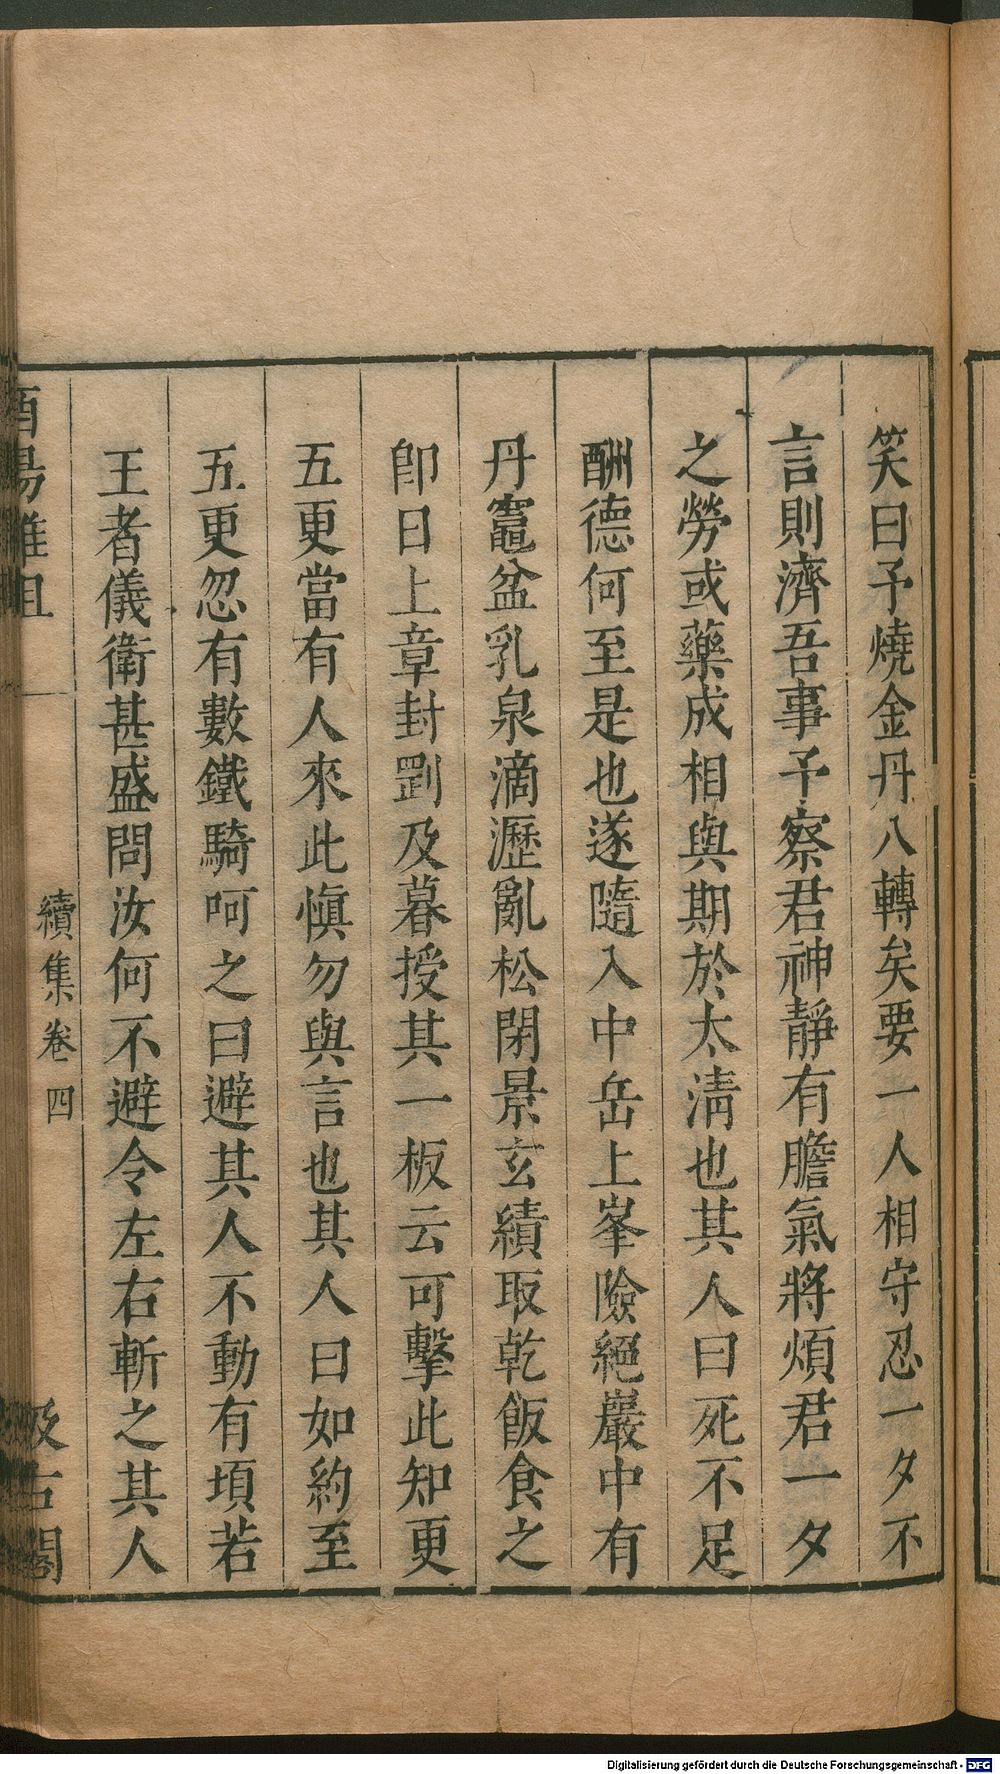 笑曰予燒金丹八轉矣要一人相守忍一夕不
言則濟吾事予察君神靜有膽氣將煩君一夕
之勞或藥成相與期於太淸也其人曰死不足
酬德何至是也遂隨入中岳上峯險絕巖中有
丹竈盆乳泉滴瀝亂松閉景玄績取乾飯食之
卽日上章封劉及暮授其一板云可擊此知更
五更當有人來此愼勿與言也其人曰如約至
五更忽有數鐵騎呵之曰避其人不動有頃若
王者儀衛甚盛問汝何不避令左右斬之其人
酉陽雜俎 續集卷四 汲古閣
Digitalisierung gefördert durch die Deutsche Forschungsgemeinschaft - DFG